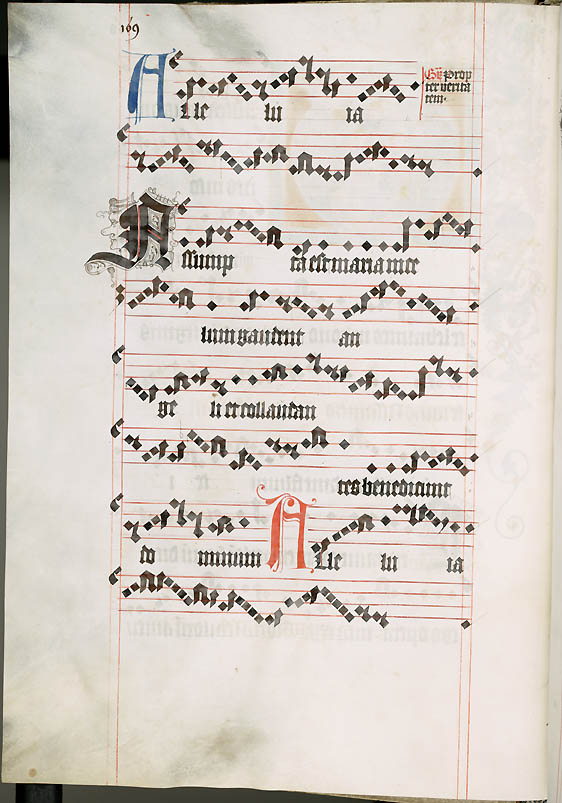 169
Alle lu ia
Gr Prop
ter verita
tem.
Assump ta est maria in ce
lum gaudent an
ge li et collaudan
tes benedicunt
do minum Alle lu ia